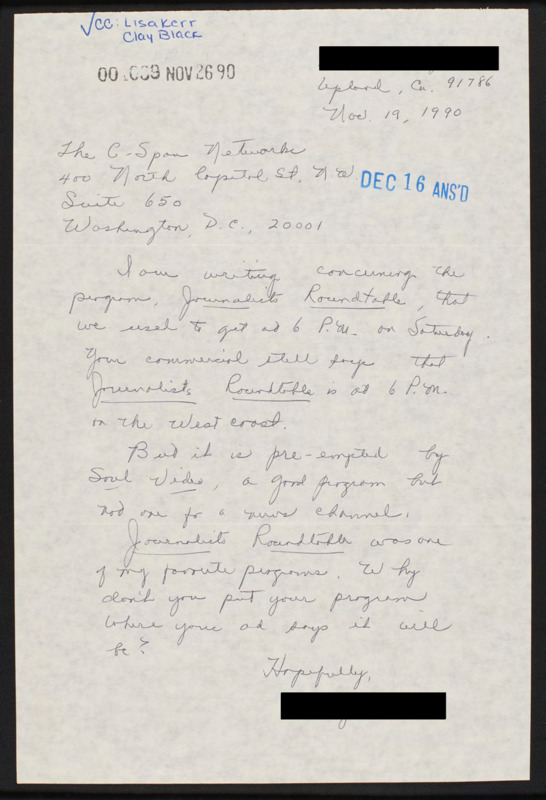 ✓CC: Lisa Kerr
Clay Black
00.689 NOV 26 90
Upland, Ca. 91786
Nov. 19, 1990
The C-Span Networks
400 North Capitol St. N W
DEC 16 ANS'D
Suite 650
Washington, D.C., 20001
I am writing concerning the
program, Journalists Roundtable, that
we used to get at 6 P.M. on Saturday.
Your commercial still says that
Journalists Roundtable is at 6 P.M.
on the West coast.
But it is pre-empted by
Soul Video, a good program but
not one for a news channel.
Journalists Roundtable was one
of my favorite programs. Why
don't you put your program
where your ad says it will
be?
Hopefully,